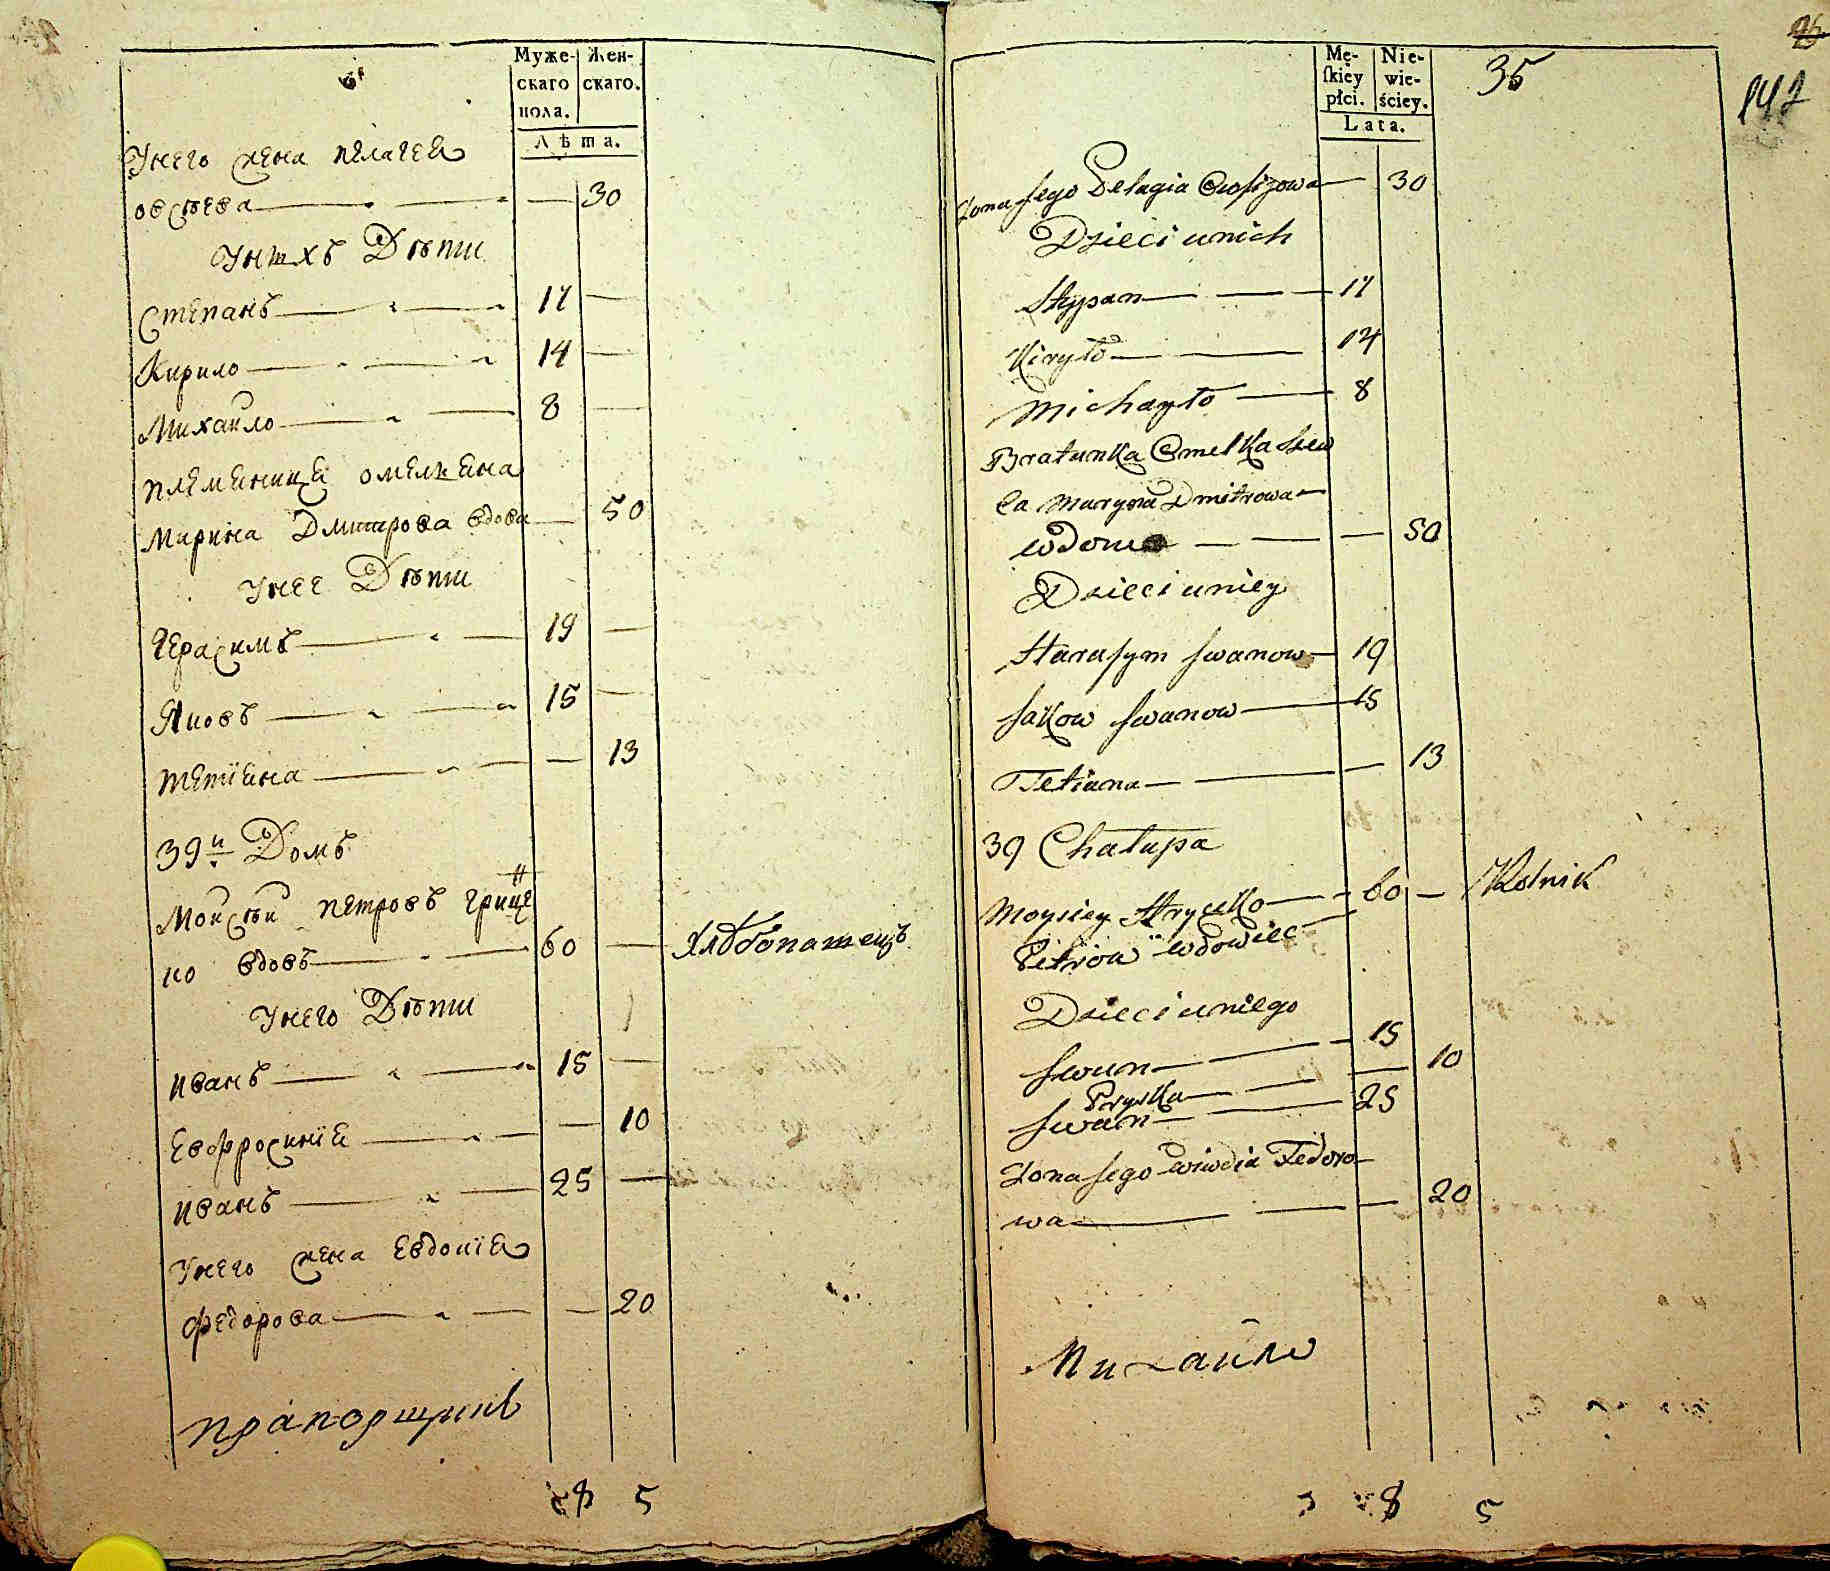 Муже-
скаго
пола.
Жен-
скаго.
Лѣта.
Унего жена пелагея
овсѣева 30
Унихъ Дѣти
Степанъ 17
Кирило 14
Михайло 8
племеника омеляна
Марина Дмитрова вдова 50
Унее Дѣти
Герасимъ 19
Яковъ 15
тетіяна 13
39й Домъ
Моисѣй петровъ грице
ко вдовъ 60 Хлѣбопашецъ
Унего Дѣти
иванъ 15
Евфросинія 10
иванъ 25
Унего жена Евдокія
федорова 20
прапорщикъ
8 5
Mę-
skiey
płci.
Nie-
wie-
ściey.
Lata.
35
142
Zona Jego Pelagia 30
Dzieci unich
Stypan 17
Kiryło 14
Michayło 8
Bratunka Omelka
Maryna Dmitrowa
wdowa 50
Dzieci uniey
Harasym Iwanow 19
Jakow Iwanow 15
Tetiana 13
39 Chałupa
Moysiey Hrycko 60 Rolnik
Petrow wdowiec
Dzieci uniego
Iwan 15
Pryska 10
Iwan 25
Zona Jego Fedoro
wa 20
Михайло
8 5